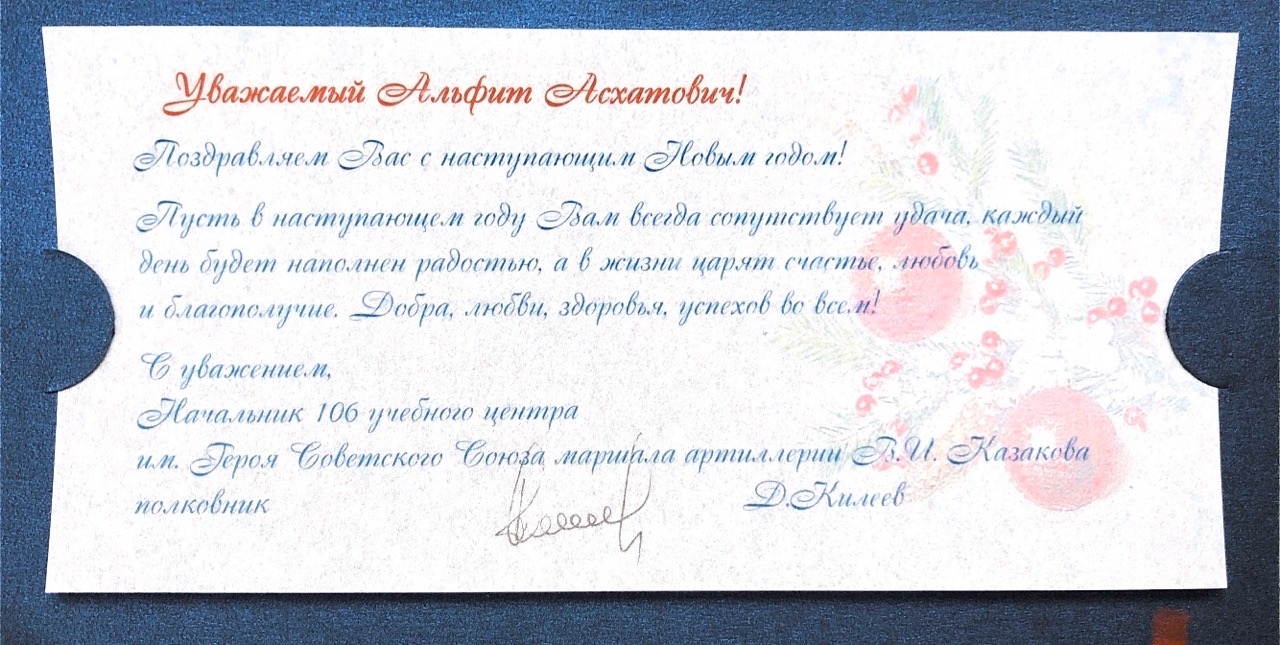 Уважаемый Альфит Асхатович!
Поздравляем Вас с наступающим Новым годом!
Пусть в наступающем году Вам всегда сопутствует удача, каждый
день будет наполнен радостью, а в жизни царят счастье, любовь
и благополучие. Добра, любви, здоровья, успехов во всем!
С уважением,
Начальник 106 учебного центра
им. Героя Советского Союза маршала артиллерии В.И. Казакова
полковник Д.Килеев